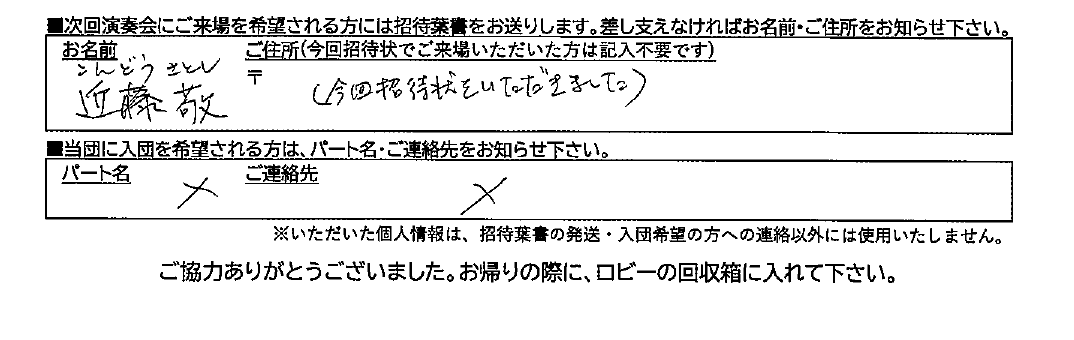 ■次回演奏会にご来場を希望される方には招待葉書をお送りします。差し支えなければお名前・ご住所をお知らせ下さい。
お名前 ご住所(今回招待状でご来場いただいた方は記入不要です)
こんどう さとし
〒
近藤 敬 (今回招待状をいただきました)
■当団に入団を希望される方は、パート名・ご連絡先をお知らせ下さい。
パート名 ご連絡先
× ×
※いただいた個人情報は、招待葉書の発送・入団希望の方への連絡以外には使用いたしません。
ご協力ありがとうございました。お帰りの際に、ロビーの回収箱に入れて下さい。